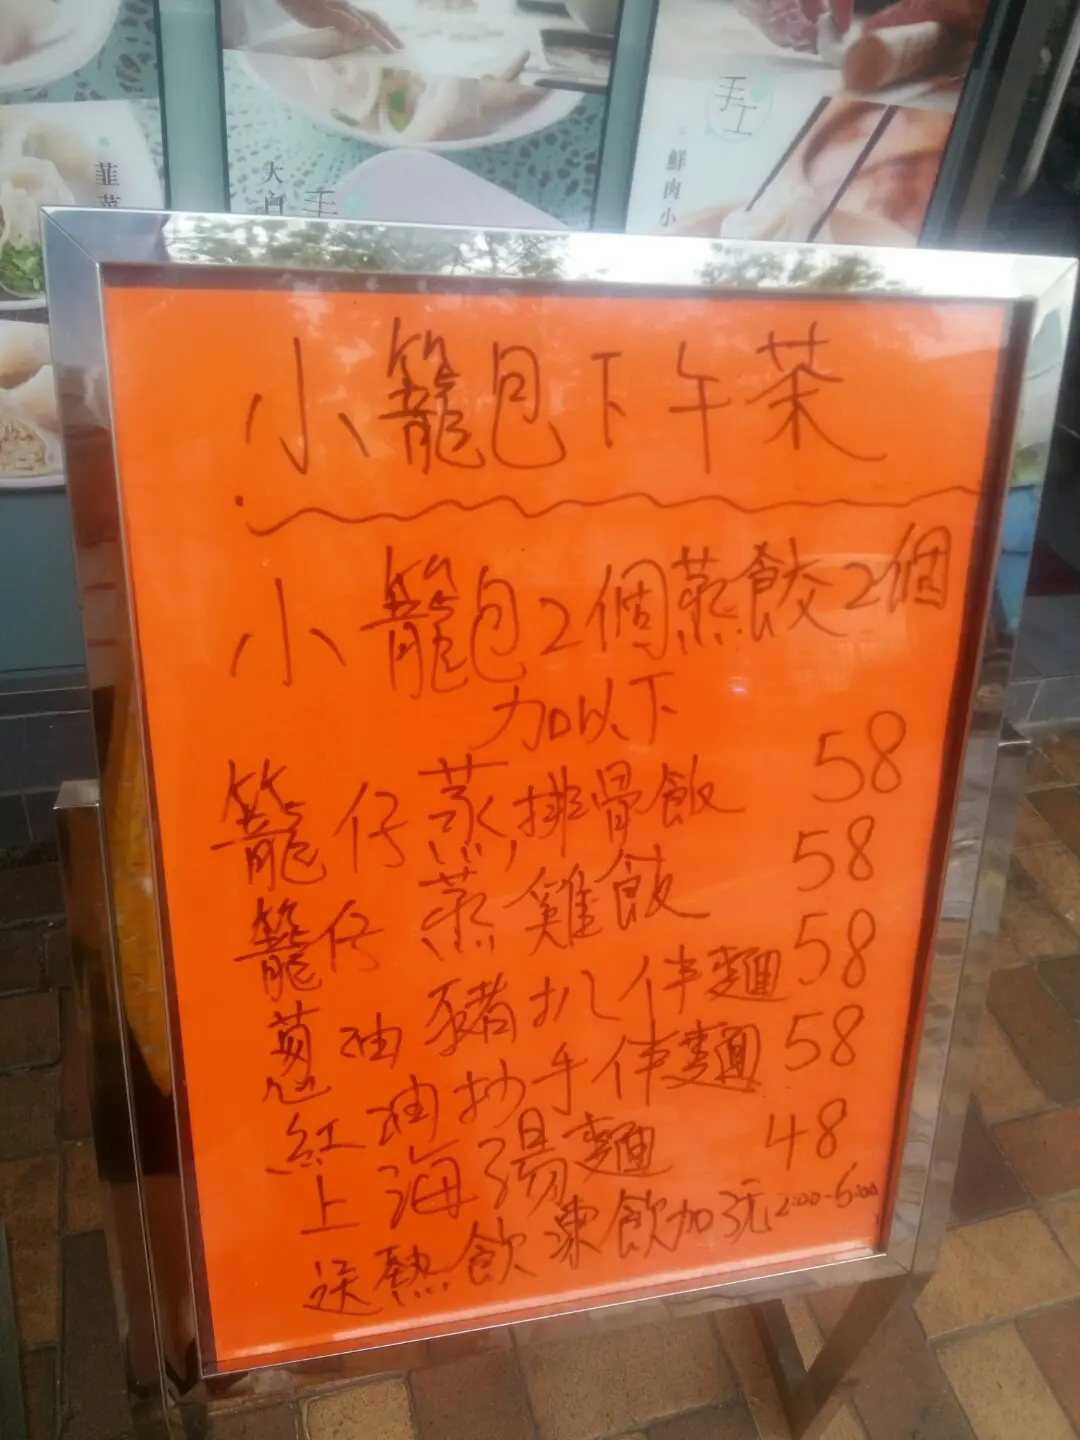 手工
韮菜
大白
手
鮮肉小
小籠包下午茶
小籠包2個蒸餃2個
加以下
籠仔蒸排骨飯 58
籠仔蒸雞飯 58
葱油豬扒伴麵 58
紅油抄手伴麵 58
上海湯麵 48
送熱飲凍飲加3元 2:00-6:00